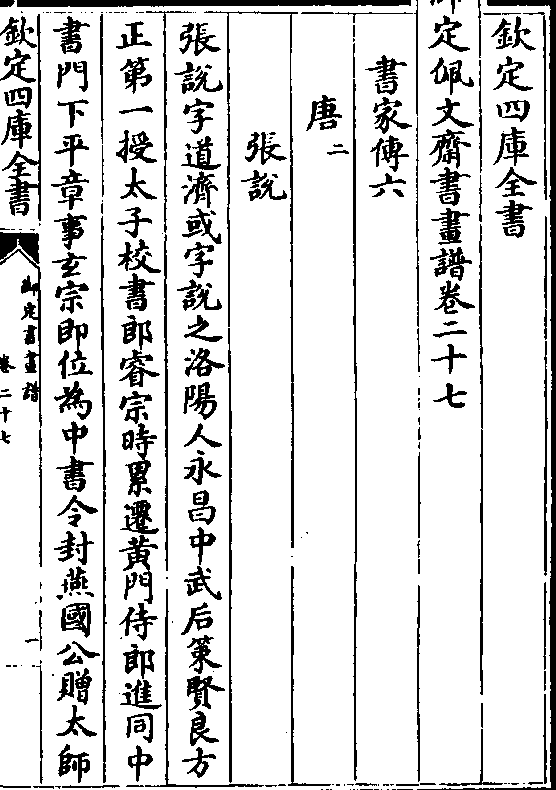 欽定四庫全書
御定佩文齋書畫譜卷二十七
書家傳六
唐二
張說
張說字道濟或字說之洛陽人永昌中武后策賢良方
正第一授太子校書郎睿宗時累遷黃門侍郎進同中
書門下平章事玄宗即位為中書令封燕國公贈太師
欽定四庫全書
御定書畫譜
卷二十七
一